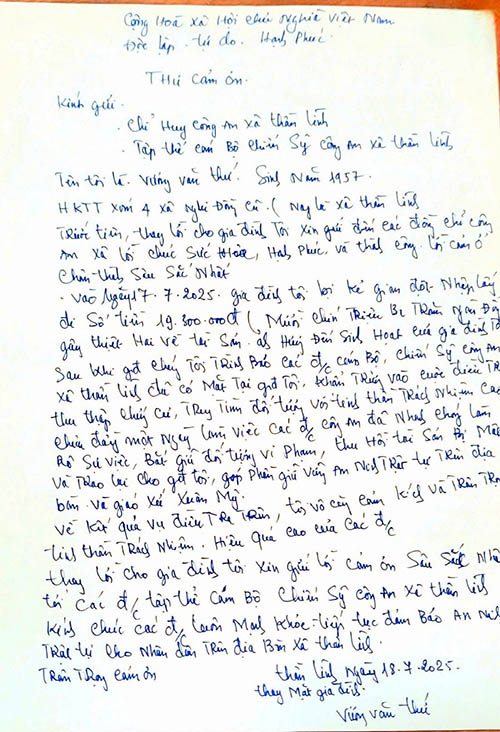 Cộng Hoà Xã Hội Chủ Nghĩa Việt Nam
Độc lập - tự do. Hạnh Phúc.
THư cảm ơn.
Kính gửi.
. Chỉ Huy Công An xã thần lĩnh
. Tập thể cán Bộ chiến Sỹ công An xã thần lĩnh
Tên tôi là. Vương văn thế. Sinh Năm 1957.
HKTT xóm 4 xã Nghi Đồng cũ. (Nay là xã thần lĩnh
Trước tiên, thay lời cho gia đình Tôi Xin gửi đến các đồng chí công
An xã lời chúc Sức khỏe, Hạnh Phúc, và thành công. lời cảm ơ
Chân thành Sâu Sắc Nhất
. vào Ngày 17.7.2025. gia đình tôi bị kẻ gian đột Nhập lấy
đi Số tiền 19.300.000đ (Mười chín Triệu Ba Trăm Ngàn Đồng
gây thiệt Hại về tài Sản. ảnh Hưởng Đến Sinh Hoạt của gia đình Tô
Sau khi gđ chúng Tôi Trình Báo các đ/c cán Bộ, chiến Sỹ công An
xã thần lĩnh đã có Mặt Tại gđ Tôi, khẩn Trương vào cuộc điều Tr
thu thập chứng cứ, Truy Tìm đối tượng với tinh thần Trách Nhiệm cao
chưa đầy một Ngày làm việc các đ/c công An đã Nhanh chóng làm
Rõ Sự việc, Bắt giữ đối tượng vi Phạm, thu Hồi tài Sản Bị Mất
và Trao lại cho gđ tôi, góp Phần giữ vững An Ninh Trật tự Trên địa
bàn. và giáo xứ Xuân Mỹ
về kết quả vụ điều Tra Trên, tôi vô cùng cảm kích và Trân Trọ
tinh thần Trách Nhiệm. Hiệu quả cao của các đ/c
thay lời cho gia đình tôi xin gửi lời cảm ơn Sâu Sắc Nhấ
tới các đ/c tập thể Cán Bộ Chiến Sỹ công An xã thần lĩnh
kính chúc các đ/c luôn Mạnh khỏe tiếp tục đảm Bảo An Ninh
Trật tự cho Nhân dân Trên địa Bàn xã thần lĩnh.
Trân Trọng cảm ơn
thần lĩnh Ngày 18.7.2025.
thay Mặt gia đình.
Vương văn thế